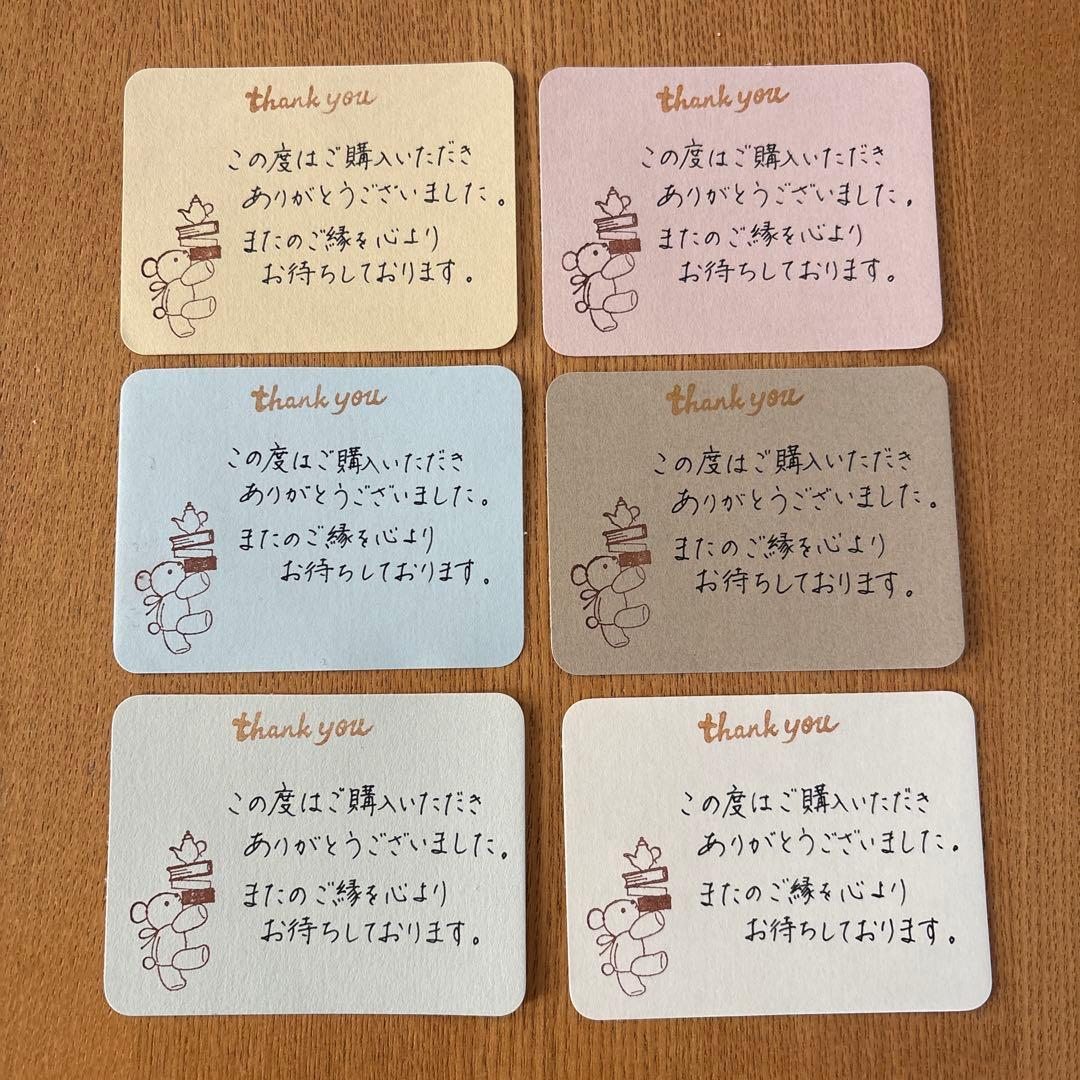 thank you
この度はご購入いただき
ありがとうございました。
またのご縁を心より
お待ちしております。
thank you
この度はご購入いただき
ありがとうございました。
またのご縁を心より
お待ちしております。
thank you
この度はご購入いただき
ありがとうございました。
またのご縁を心より
お待ちしております。
thank you
この度はご購入いただき
ありがとうございました。
またのご縁を心より
お待ちしております。
thank you
この度はご購入いただき
ありがとうございました。
またのご縁を心より
お待ちしております。
thank you
この度はご購入いただき
ありがとうございました。
またのご縁を心より
お待ちしております。